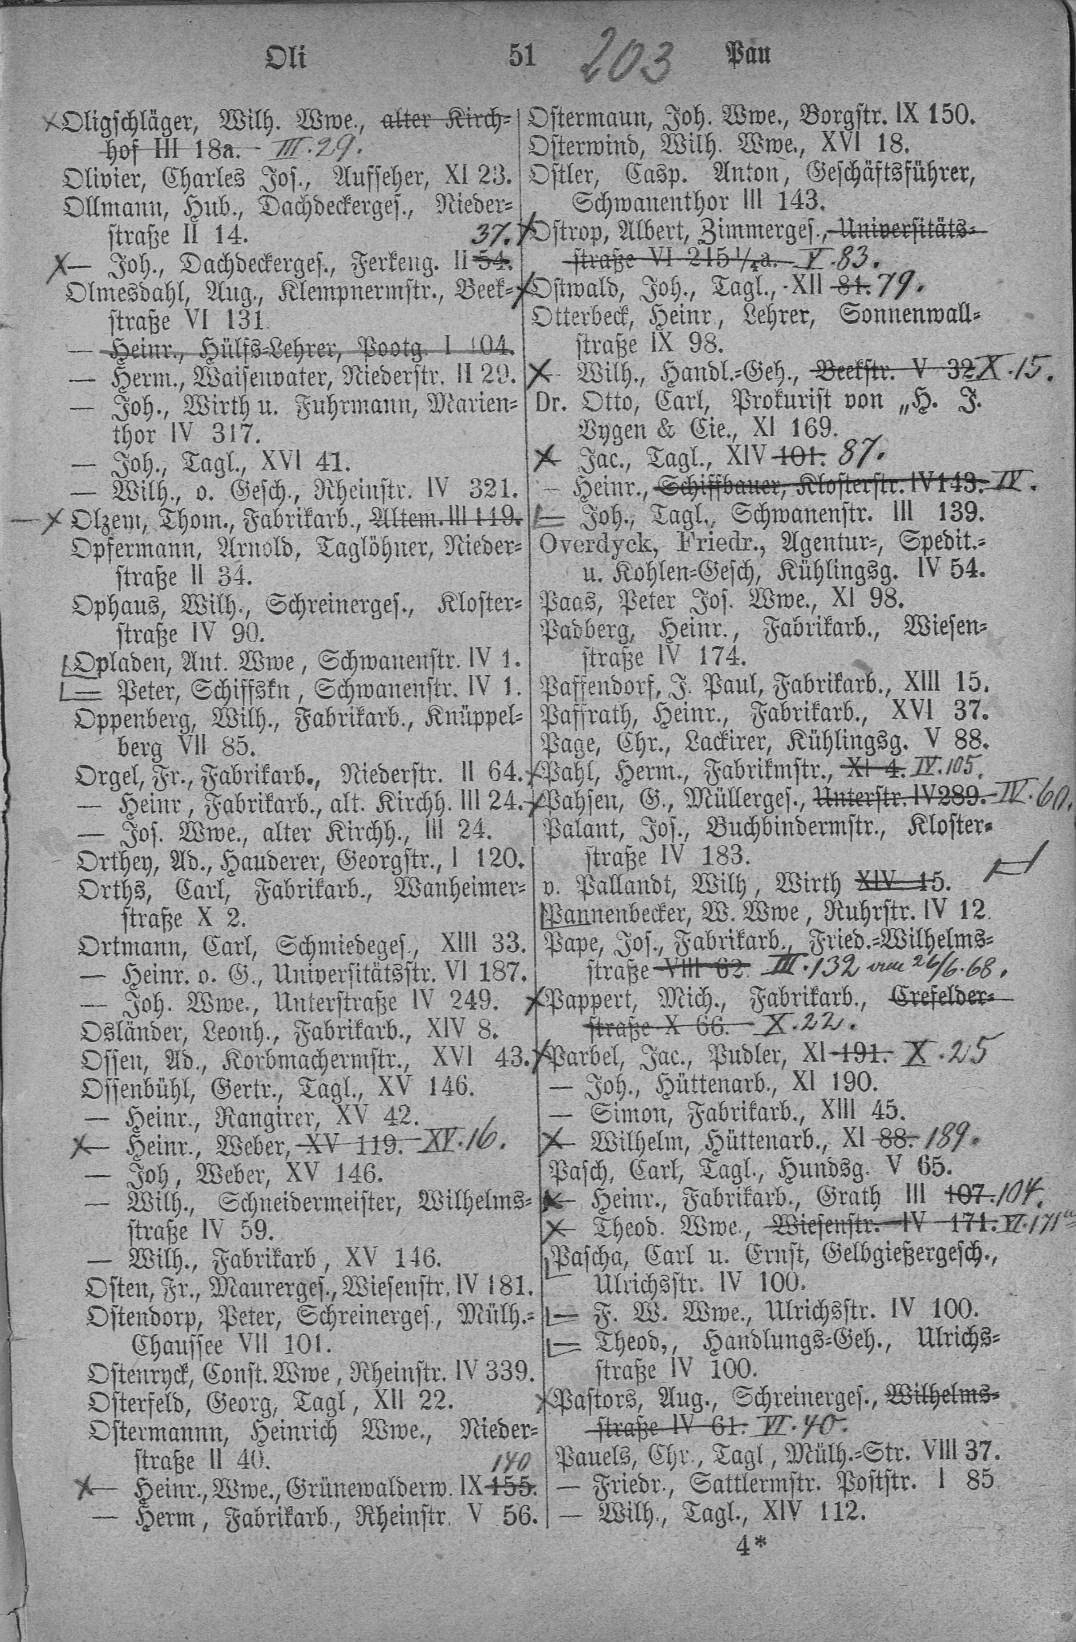 Oli 51 203 Pau
Oligschläger, Wilh. Wwe., alter Kirch-
hof III 18a. III. 29.
Olivier, Charles Jos., Aufseher, XI 23.
Ollmann, Hub., Dachdeckerges., Nieder-
straße II 14. 37.
— Joh., Dachdeckerges., Ferkeng. II 54.
Olmesdahl, Aug., Klempnermstr., Beek-
straße VI 131
— Heinr., Hülfs-Lehrer, Pootg. I 104.
— Herm., Waisenvater, Niederstr. II 29.
— Joh., Wirth u. Fuhrmann, Marien-
thor IV 317.
— Joh., Tagl., XVI 41.
— Wilh., o. Gesch., Rheinstr. IV 321.
Olzem, Thom., Fabrikarb., Altem. III 119.
Opfermann, Arnold, Taglöhner, Nieder-
straße II 34.
Ophaus, Wilh., Schreinerges., Kloster-
straße IV 90.
Opladen, Ant. Wwe, Schwanenstr. IV 1.
— Peter, Schiffskn, Schwanenstr. IV 1.
Oppenberg, Wilh., Fabrikarb., Knüppel-
berg VII 85.
Orgel, Fr., Fabrikarb., Niederstr. II 64.
— Heinr, Fabrikarb., alt. Kirchh. III 24.
— Jos. Wwe., alter Kirchh., III 24.
Orthey, Ad., Hauderer, Georgstr., I 120.
Orths, Carl, Fabrikarb., Wanheimer-
straße X 2.
Ortmann, Carl, Schmiedeges., XIII 33.
— Heinr. o. G., Universitätsstr. VI 187.
— Joh. Wwe., Unterstraße IV 249.
Osländer, Leonh., Fabrikarb., XIV 8.
Ossen, Ad., Korbmachermstr., XVI 43.
Ossenbühl, Gertr., Tagl., XV 146.
— Heinr., Rangirer, XV 42.
— Heinr., Weber, XV 119. XV. 16.
— Joh, Weber, XV 146.
— Wilh., Schneidermeister, Wilhelms-
straße IV 59.
— Wilh., Fabrikarb, XV 146.
Osten, Fr., Maurerges., Wiesenstr. IV 181.
Ostendorp, Peter, Schreinerges., Mülh.-
Chaussee VII 101.
Ostenryck, Const. Wwe, Rheinstr. IV 339.
Osterfeld, Georg, Tagl, XII 22.
Ostermannn, Heinrich Wwe., Nieder-
straße II 40. 140
— Heinr., Wwe., Grünewalderw. IX 155.
— Herm, Fabrikarb., Rheinstr. V 56.
Ostermann, Joh. Wwe., Borgstr. IX 150.
Osterwind, Wilh. Wwe., XVI 18.
Ostler, Casp. Anton, Geschäftsführer,
Schwanenthor III 143.
Ostrop, Albert, Zimmerges., Universitäts-
straße VI 215 1/4a. V. 83.
Ostwald, Joh., Tagl., XII 81. 79.
Otterbeck, Heinr, Lehrer, Sonnenwall-
straße IX 98.
— Wilh., Handl.-Geh., Beekstr. V 32 X. 15.
Dr. Otto, Carl, Prokurist von „H. J.
Vygen & Cie., XI 169.
— Jac., Tagl., XIV 101. 87.
— Heinr., Schiffbauer, Klosterstr. IV 143. IV.
— Joh., Tagl., Schwanenstr. III 139.
Overdyck, Friedr., Agentur-, Spedit.-
u. Kohlen-Gesch, Kühlingsg. IV 54.
Paas, Peter Jos. Wwe., XI 98.
Padberg, Heinr., Fabrikarb., Wiesen-
straße IV 174.
Paffendorf, J. Paul, Fabrikarb., XIII 15.
Paffrath, Heinr., Fabrikarb., XVI 37.
Page, Chr., Lackirer, Kühlingsg. V 88.
Pahl, Herm., Fabrikmstr., XI 4. IV. 105.
Pahsen, G., Müllerges., Unterstr. IV 289. IV. 60.
Palant, Jos., Buchbindermstr., Kloster-
straße IV 183.
v. Pallandt, Wilh, Wirth XIV 15.
Pannenbecker, W. Wwe, Ruhrstr. IV 12
Pape, Jos., Fabrikarb., Fried.-Wilhelms-
straße VIII 62. III. 132 26/6. 68.
Pappert, Mich., Fabrikarb., Crefelder-
straße X 66. X. 22.
Parbel, Jac., Pudler, XI 191. X. 25
— Joh., Hüttenarb., XI 190.
— Simon, Fabrikarb., XIII 45.
— Wilhelm, Hüttenarb., XI 88. 189.
Pasch, Carl, Tagl., Hundsg. V 65.
— Heinr., Fabrikarb., Grath III 107. 104.
— Theod. Wwe., Wiesenstr. IV 171. VI. 171
Pascha, Carl u. Ernst, Gelbgießergesch.,
Ulrichsstr. IV 100.
— F. W. Wwe., Ulrichsstr. IV 100.
— Theod,, Handlungs-Geh., Ulrichs-
straße IV 100.
Pastors, Aug., Schreinerges., Wilhelms-
straße IV 61. VI. 40.
Pauels, Chr., Tagl, Mülh.-Str. VIII 37.
— Friedr., Sattlermstr. Poststr. I 85
— Wilh., Tagl., XIV 112.
4*